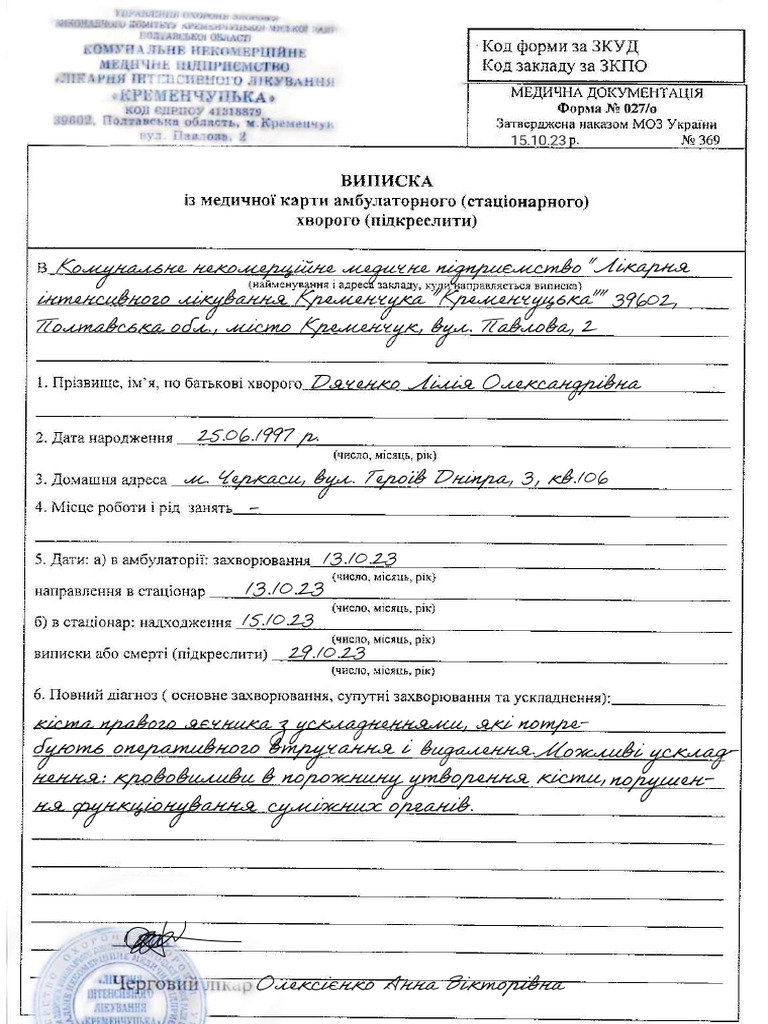 УПРАВЛІННЯ ОХОРОНИ ЗДОРОВ'Я
ВИКОНАВЧОГО КОМІТЕТУ КРЕМЕНЧУЦЬКОЇ МІСЬКОЇ РАДИ
ПОЛТАВСЬКОЇ ОБЛАСТІ
КОМУНАЛЬНЕ НЕКОМЕРЦІЙНЕ
МЕДИЧНЕ ПІДПРИЄМСТВО
«ЛІКАРНЯ ІНТЕНСИВНОГО ЛІКУВАННЯ
«КРЕМЕНЧУЦЬКА»
КОД ЄДРПОУ 41318879
39602, Полтавська область, м.Кременчук
вул. Павлова, 2
Код форми за ЗКУД
Код закладу за ЗКПО
МЕДИЧНА ДОКУМЕНТАЦІЯ
Форма № 027/о
Затверджена наказом МОЗ України
15.10.23 р. № 369
ВИПИСКА
із медичної карти амбулаторного (стаціонарного)
хворого (підкреслити)
В Комунальне некомерційне медичне підприємство "Лікарня
(найменування і адреса закладу, куди направляється виписка)
інтенсивного лікування Кременчука "Кременчуцька"" 39602,
Полтавська обл., місто Кременчук, вул. Павлова, 2
1. Прізвище, ім'я, по батькові хворого Дяченко Лілія Олександрівна
2. Дата народження 25.06.1997 р.
(число, місяць, рік)
3. Домашня адреса м. Черкаси, вул. Героїв Дніпра, 3, кв.106
4. Місце роботи і рід занять -
5. Дати: а) в амбулаторії: захворювання 13.10.23
(число, місяць, рік)
направлення в стаціонар 13.10.23
(число, місяць, рік)
б) в стаціонар: надходження 15.10.23
(число, місяць, рік)
виписки або смерті (підкреслити) 29.10.23
(число, місяць, рік)
6. Повний діагноз ( основне захворювання, супутні захворювання та ускладнення):
кіста правого яєчника з ускладненнями, які потре-
бують оперативного втручання і видалення. Можливі усклад-
нення: крововиливи в порожнину утворення кісти, порушен-
ня функціонування суміжних органів.
Черговий лікар Олексієнко Анна Вікторівна
«ЛІКАРНЯ
ІНТЕНСИВНОГО
ЛІКУВАННЯ
«КРЕМЕНЧУЦЬКА»